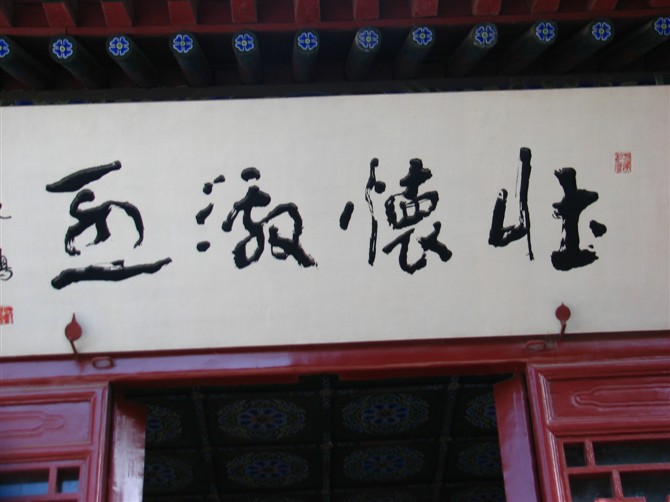 壮懷激烈